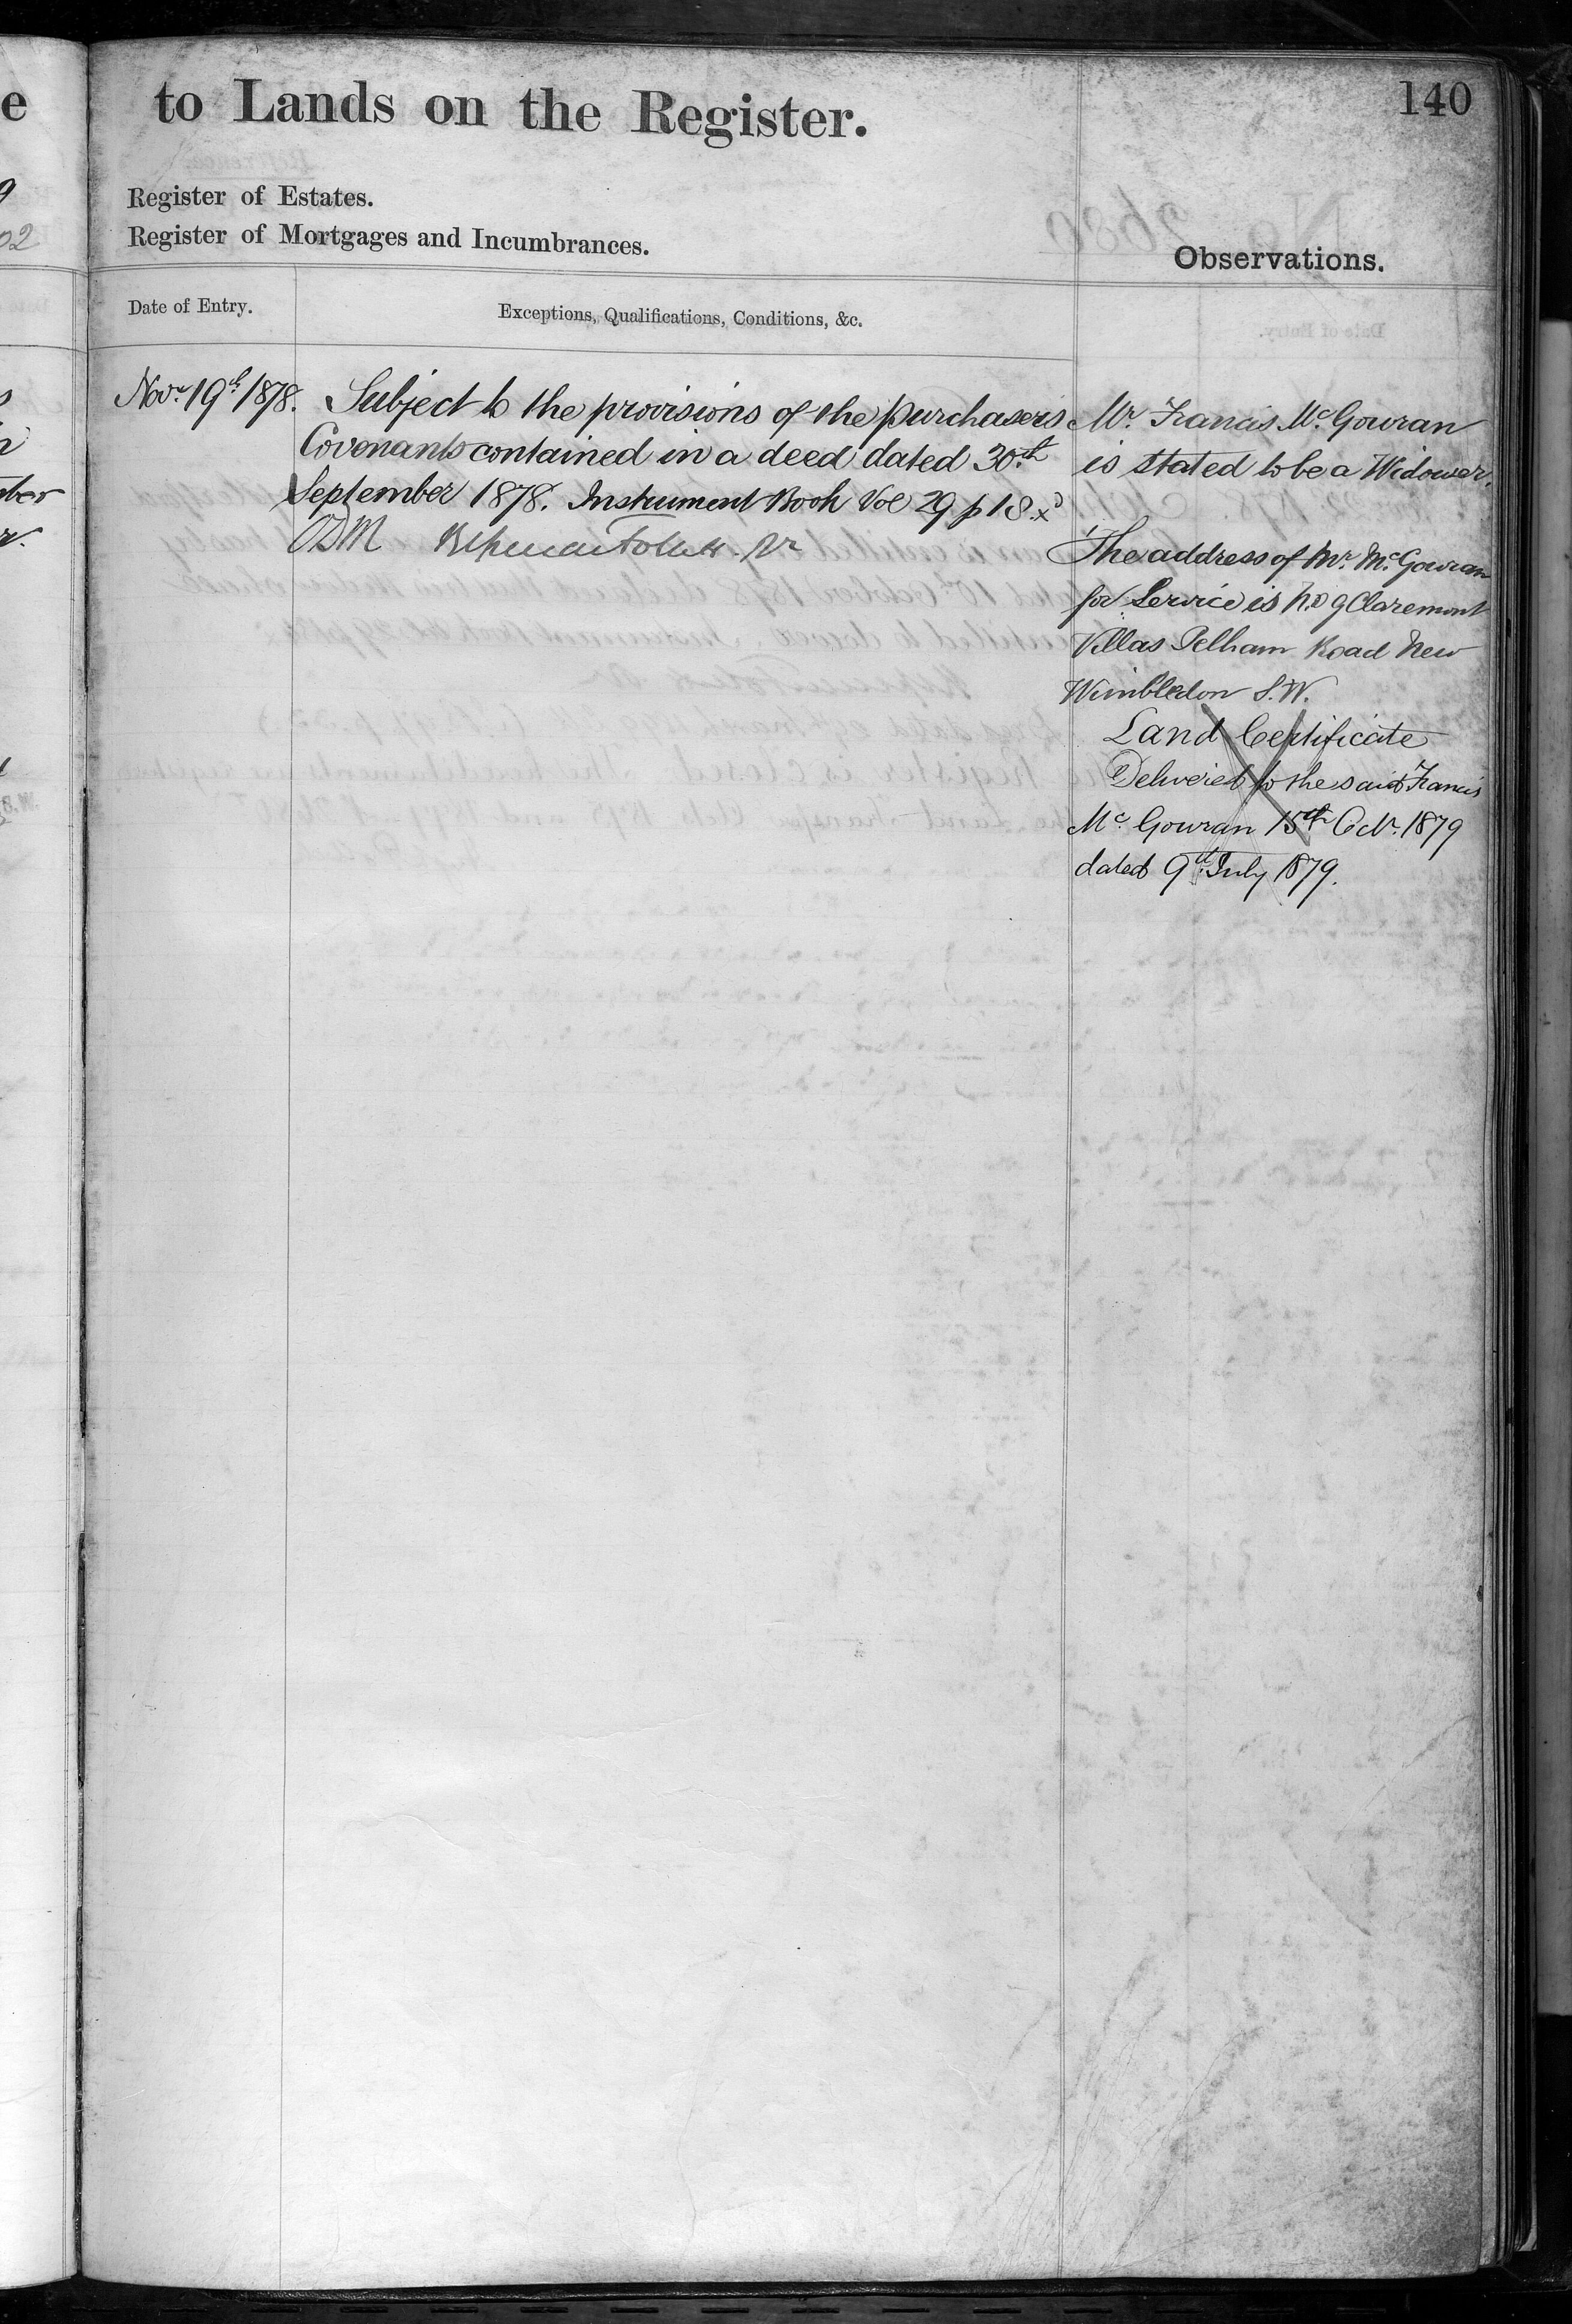 to Lands on the Register.
140
Register of Estates.
Register of Mortgages and Incumbrances.
Observations.
Date of Entry.
Exceptions, Qualifications, Conditions, &c.
Novr. 19th. 1878.
Subject to the provisions of the purchasers
Covenants contained in a deed dated 30th
September 1878. Instrument Book Vol 29 p 18.
Mr. Francis Mc.Gowran
is stated to be a Widower.
The address of Mr. Mc.Gowran
for Service is No 9 Claremont
Villas Pelham Road New
Wimbledon S.W.
Land Certificate
Delivered to the said Francis
Mc. Gowran 15th Octr. 1879
dated 9th July 1879.